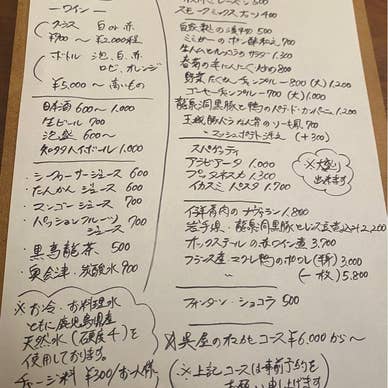 ーワインー
グラス 白or赤
¥700〜¥2,000程
ボトル 泡、白、赤
ロゼ、オレンジ
¥5,000〜高いもの
日本酒 600〜1,000
生ビール 700
泡盛 600〜
知多ハイボール 1,000
シークァーサージュース 600
たんかんジュース 600
マンゴージュース 700
パッションフルーツ
ジュース 700
黒烏龍茶 500
奥会津・炭酸水 900
※お冷・お料理水
ともに鹿児島県産
天然水(硬度千)を
使用しております。
チャージ料 ¥300/お一人様
500
スモークミックスナッツ 400
自家製の漬物 500
ミミガーのポン酢和え 700
生ハムとサラダ 1,300
春菊の 800
野菜たくさんチャンプルー 800 (大)1,200
ゴーヤーチャンプルー 700 (大)1,000
龍泉洞黒豚と鴨のパテ・ド・カンパーニュ 1,200
700
マッシュポテト添え (+300)
スパゲッティ
アラビアータ 1,000
プッタネスカ 1,300
イカスミパスタ 1,700
※大盛り
出来ます
仔羊肩肉のナヴァラン 1,800
岩手県・龍泉洞黒豚 2,200
オックステールの赤ワイン煮 3,900
フランス産・マグレ鴨のポワレ (半) 3,000
〃 (一枚) 5,800
フォンダン・ショコラ 500
コース ¥6,000から〜
(※上記コースは事前予約を
お願い申し上げます